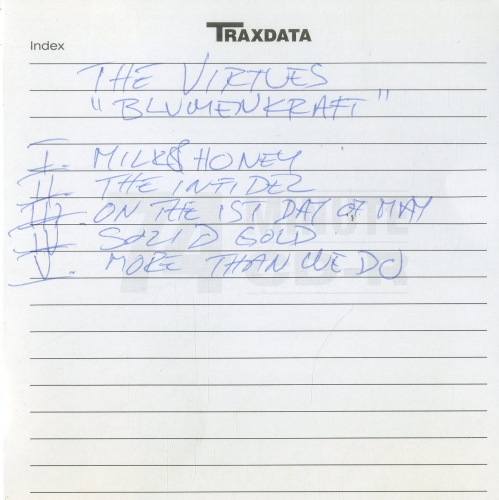 TRAXDATA
Index
THE VIRTUES
"BLUMENKRAFT"
I. MILK & HONEY
II. THE INFIDEL
III. ON THE 1ST DAY OF MAY
IV SOLID GOLD
V. MORE THAN WE DO